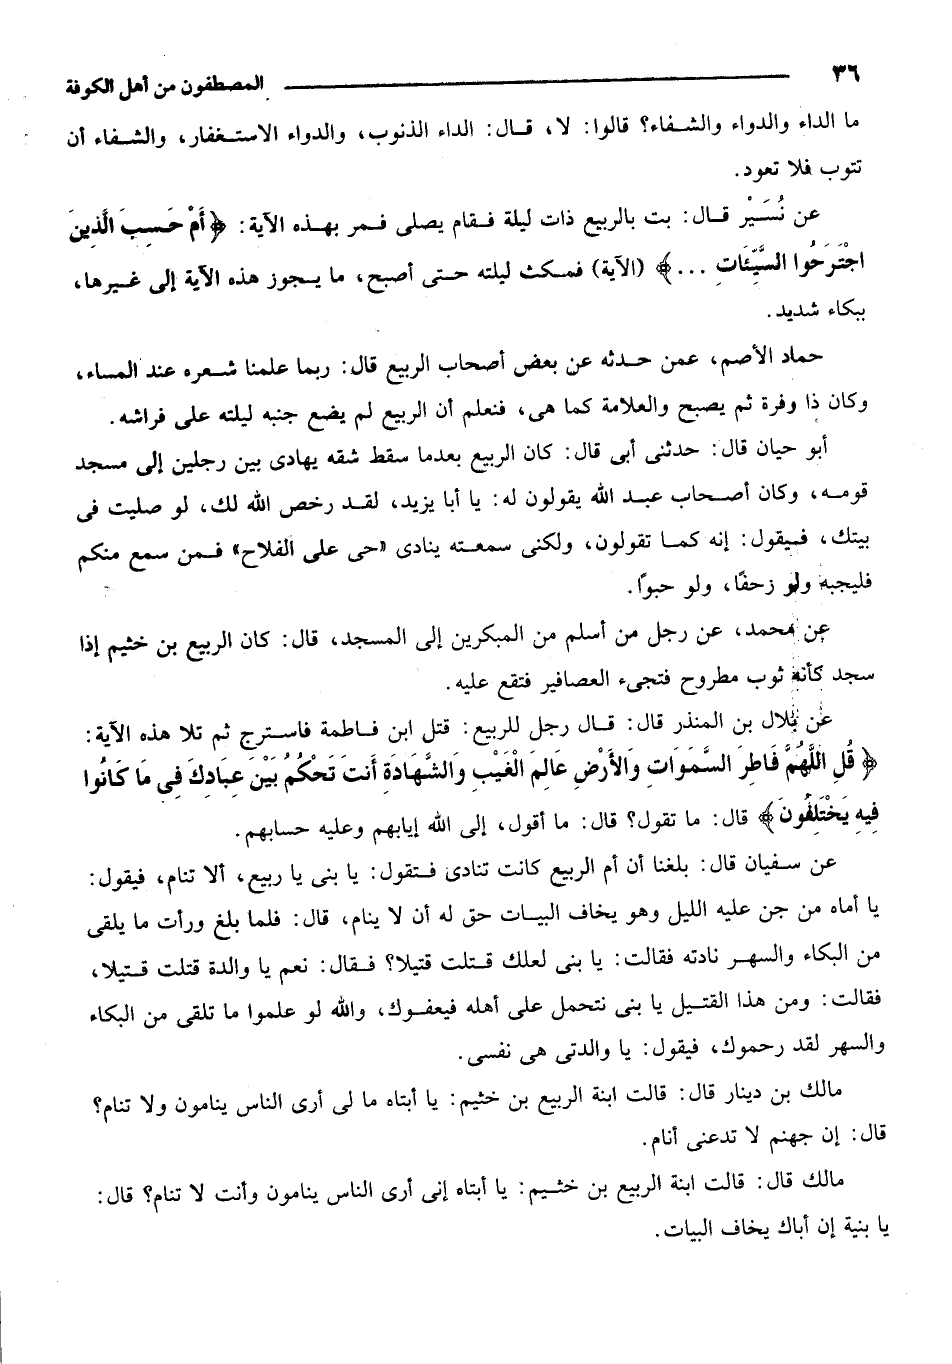 ٣٦ المصطفون من أهل الكوفة
ما الداء والدواء والشفاء؟ قالوا: لا، قال: الداء الذنوب، والدواء الاستغفار، والشفاء أن
تتوب فلا تعود.
عن نُسَيْر قال: بت بالربيع ذات ليلة فقام يصلى فمر بهذه الآية: ﴿أَمْ حَسِبَ الَّذِينَ
اجْتَرَحُوا السَّيِّئَاتِ ...﴾ (الآية) فمكث ليلته حتى أصبح، ما يجوز هذه الآية إلى غيرها،
ببكاء شديد.
حماد الأصم، عمن حدثه عن بعض أصحاب الربيع قال: ربما علمنا شعره عند المساء،
وكان ذا وفرة ثم يصبح والعلامة كما هى، فنعلم أن الربيع لم يضع جنبه ليلته على فراشه.
أبو حيان قال: حدثنى أبى قال: كان الربيع بعدما سقط شقه يهادى بين رجلين إلى مسجد
قومه، وكان أصحاب عبد الله يقولون له: يا أبا يزيد، لقد رخص الله لك، لو صليت فى
بيتك، فيقول: إنه كما تقولون، ولكنى سمعته ينادى «حى على الفلاح» فمن سمع منكم
فليجبه ولو زحفًا، ولو حبوًا.
عن محمد، عن رجل من أسلم من المبكرين إلى المسجد، قال: كان الربيع بن خثيم إذا
سجد كأنه ثوب مطروح فتجىء العصافير فتقع عليه.
عن بلال بن المنذر قال: قال رجل للربيع: قتل ابن فاطمة فاسترج ثم تلا هذه الآية:
﴿قُلِ اللَّهُمَّ فَاطِرَ السَّمَوَاتِ وَالأَرْضِ عَالِمَ الْغَيْبِ وَالشَّهَادَةِ أَنتَ تَحْكُمُ بَيْنَ عِبَادِكَ فِى مَا كَانُوا
فِيهِ يَخْتَلِفُونَ﴾ قال: ما تقول؟ قال: ما أقول، إلى الله إيابهم وعليه حسابهم.
عن سفيان قال: بلغنا أن أم الربيع كانت تنادى فتقول: يا بنى يا ربيع، ألا تنام، فيقول:
يا أماه من جن عليه الليل وهو يخاف البيات حق له أن لا ينام، قال: فلما بلغ ورأت ما يلقى
من البكاء والسهر نادته فقالت: يا بنى لعلك قتلت قتيلا؟ فقال: نعم يا والدة قتلت قتيلا،
فقالت: ومن هذا القتيل يا بنى نتحمل على أهله فيعفوك، والله لو علموا ما تلقى من البكاء
والسهر لقد رحموك، فيقول: يا والدتى هى نفسى.
مالك بن دينار قال: قالت ابنة الربيع بن خثيم: يا أبتاه ما لى أرى الناس ينامون ولا تنام؟
قال: إن جهنم لا تدعنى أنام.
مالك قال: قالت ابنة الربيع بن خثيم: يا أبتاه إنى أرى الناس ينامون وأنت لا تنام؟ قال:
يا بنية إن أباك يخاف البيات.